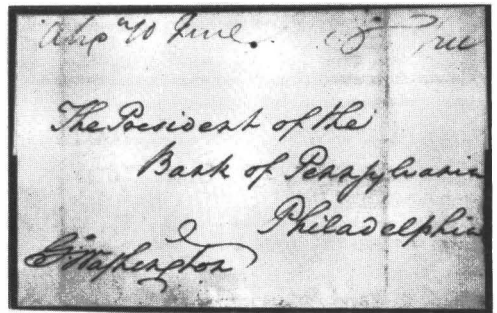 Alxa 10 June. Free
The President of the
Bank of Pennsylvania
Philadelphia
G:Washington